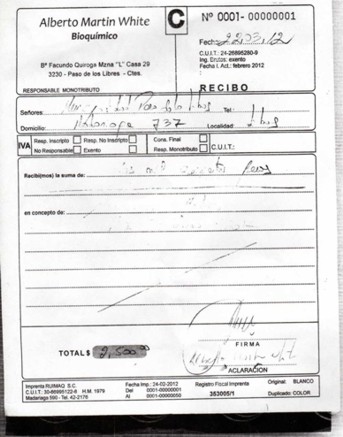 Alberto Martin White
Bioquímico
8º Facundo Quiroga Mzna "L" Casa 29
3230 - Paso de los Libres - Ctes.
RESPONSABLE MONOTRIBUTO
C
Nº 0001- 00000001
Fecha
C.U.I.T.: 24-26895280-9
Ing. Brutos: exento
Fecha I. Act.: febrero 2012
RECIBO
Señores: Paso de los Libres Tel.:
Domicilio: 737 Localidad: Libres
IVA Resp. Inscripto Resp. No Inscripto Cons. Final
No Responsable Exento Resp. Monotributo C.U.I.T.:
Recibi(mos) la suma de: dos mil Pesos
en concepto de:
TOTAL $ 2,500.00
FIRMA
ACLARACIÓN
Imprenta RUIMAQ S.C.
C.U.I.T. H.M. 1979
Madariaga 590 - Tel. 42-2176
Fecha Imp.: 24-02-2012
Del 0001-00000001
Al 0001-00000050
Registro Fiscal Imprenta
363005/1
Original: BLANCO
Duplicado: COLOR